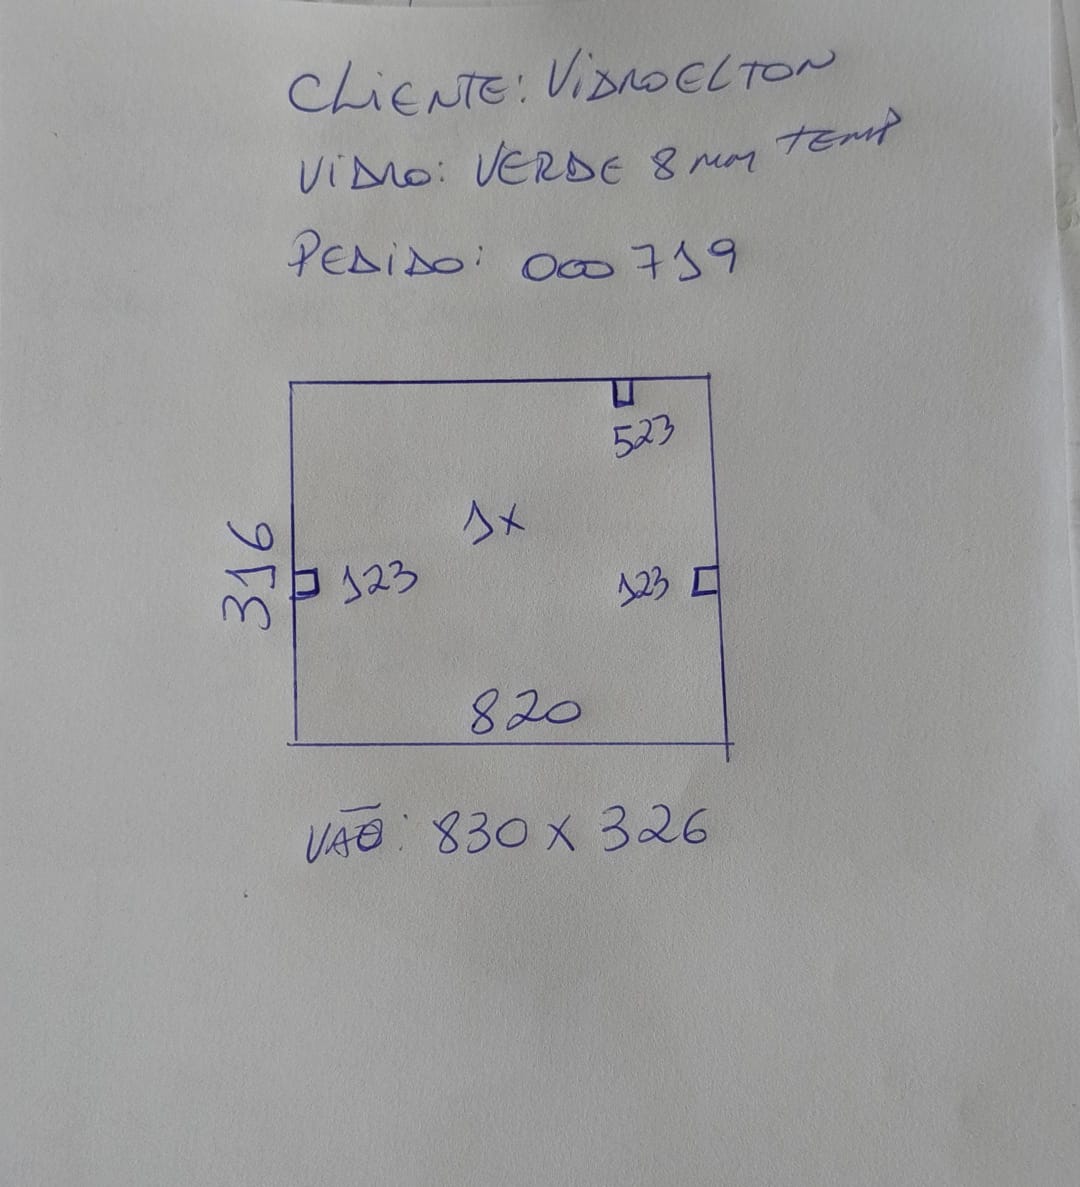 CLIENTE: VIDROELTON
VIDRO: VERDE 8 MM TEMP
PEDIDO: 000719
523
1X
316
123
123
820
VÃO: 830 X 326